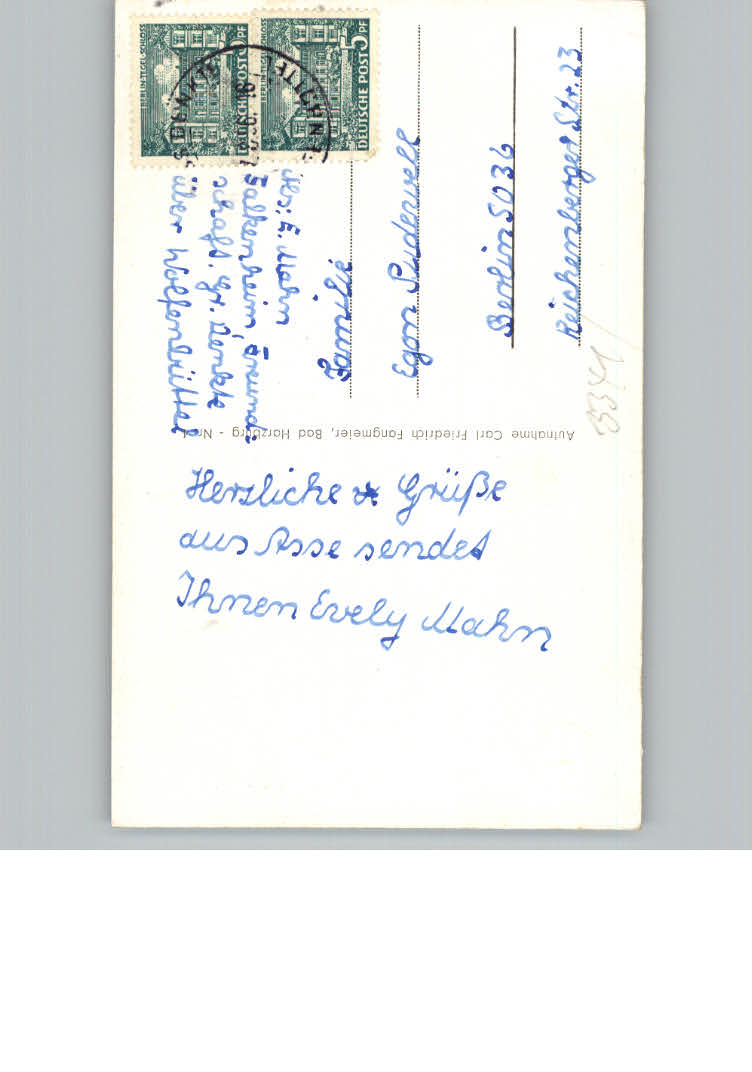 Herzliche Grüße
aus Asse sendet
Ihnen Evely Mahn
Abs: E. Mahn
Falkenheim, Freund-
schaft. Gr. Denkte
über Wolfenbüttel
Familie
Egon Suderwell
Berlin SO 36
Reichenberger Str. 23
Aufnahme Carl Friedrich Fangmeier, Bad Harzburg - Nr
BERLIN-TEGEL, SCHLOSS
DEUTSCHE POST 5 PF
BERLIN-TEGEL, SCHLOSS
DEUTSCHE POST 5 PF